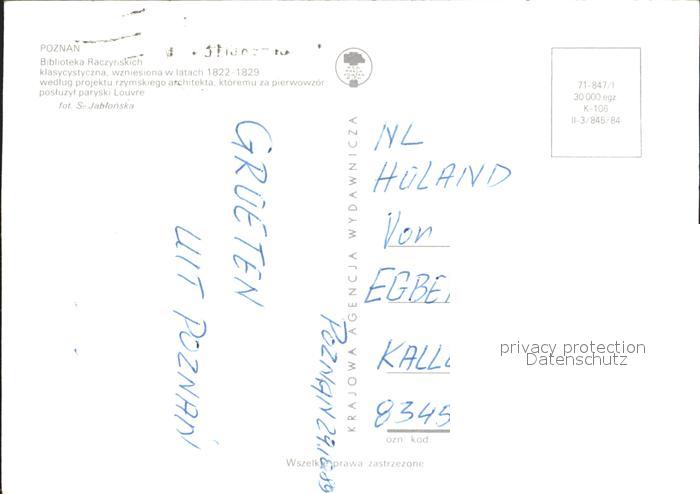 POZNAŃ
Biblioteka Raczyńskich
klasycystyczna, wzniesiona w latach 1822-1829
według projektu rzymskiego architekta, któremu za pierwowzór
posłużył paryski Louvre
fot. S. Jabłońska
GRÜETEN
UIT POZNAŃ
POZNAŃ
KRAJOWA AGENCJA WYDAWNICZA
71-847/1
30 000 egz.
K-106
II-3/846/84
NL
HOLAND
Von
EGBE
KALL
8345
ozn. kod
Wszelkie prawa zastrzeżone
privacy protection
Datenschutz